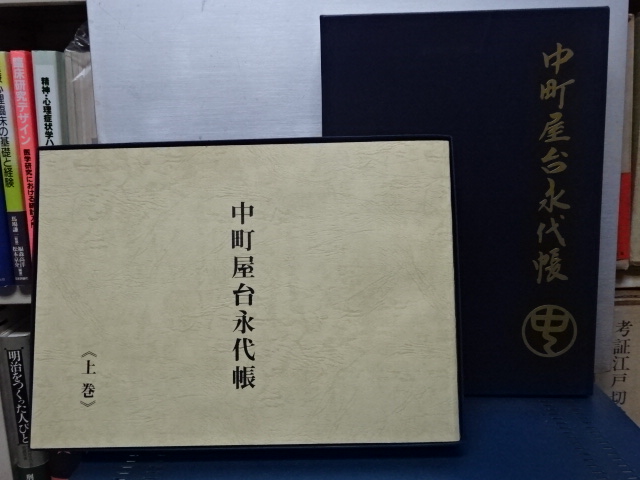 中町屋台永代帳
《上巻》
中町屋台永代帳
中
臨床研究デザイン
医学研究における
精神・心理症状学ハ
心理臨床の基礎と経験
明治をつくった人びと
考証江戸切